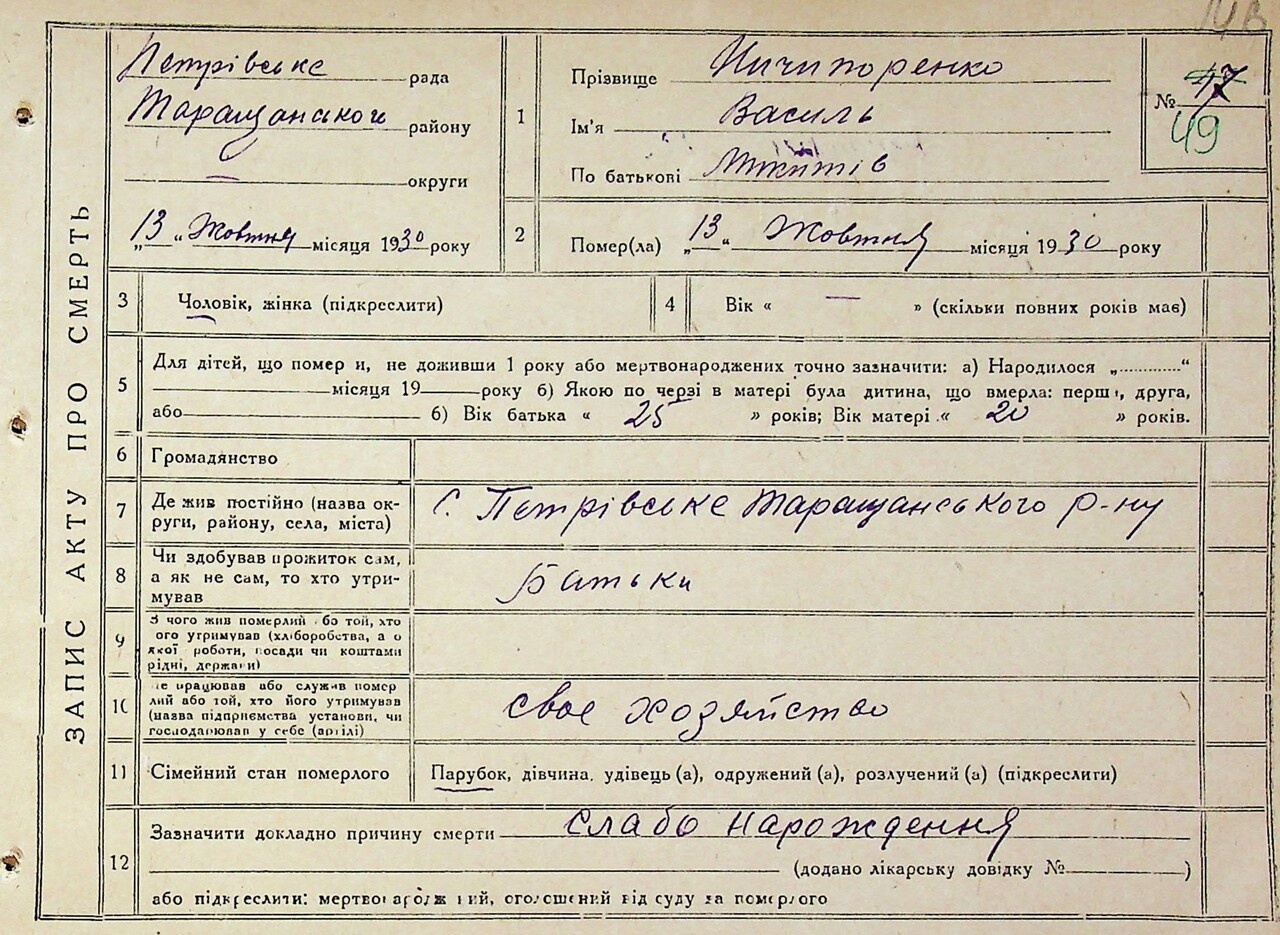 ЗАПИС АКТУ ПРО СМЕРТЬ
Петрівське рада
Таращанського району
— округи
„13“ Жовтня місяця 1930 року
1
Прізвище Ничипоренко
Ім'я Василь
По батькові Микитів
№ 47
49
2
Помер(ла) „13“ Жовтня місяця 1930 року
3 Чоловік, жінка (підкреслити)
4 Вік « — » (скільки повних років має)
5
Для дітей, що помер и, не доживши 1 року або мертвонароджених точно зазначити: а) Народилося „............“
місяця 19 року б) Якою по черзі в матері була дитина, що вмерла: перша, друга,
або б) Вік батька « 25 » років; Вік матері « 20 » років.
6 Громадянство
7 Де жив постійно (назва ок-
руги, району, села, міста)
с. Петрівське Таращанського р-ну
8 Чи здобував прожиток сам,
а як не сам, то хто утри-
мував
Батьки
9 З чого жив померлий або той, хто
ого утримував (хліборобства, а о
якої роботи, посади чи коштами
рідні, держави)
10 де працював або служив помер
лий або той, хто його утримував
(назва підприємства установи, чи
господарював у себе (артілі)
своє хозяйство
11 Сімейний стан померлого
Парубок, дівчина, удівець (а), одружений (а), розлучений (а) (підкреслити)
12
Зазначити докладно причину смерти слабо нарождення
(додано лікарську довідку № )
або підкреслити: мертвонароджений, оголошений від суду за померлого